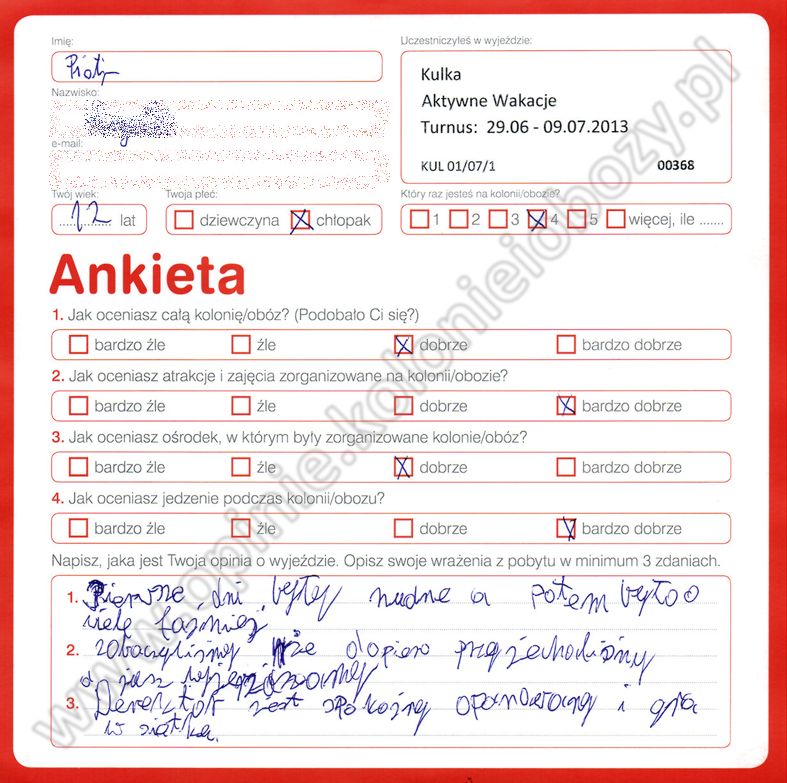 Imię:
Piotr
Nazwisko:
e-mail:
Twój wiek:
12 lat
Twoja płeć:
dziewczyna chłopak
Uczestniczyłeś w wyjeździe:
Kulka
Aktywne Wakacje
Turnus: 29.06 - 09.07.2013
KUL 01/07/1 00368
Który raz jesteś na kolonii/obozie?
1 2 3 4 5 więcej, ile .......
Ankieta
1. Jak oceniasz całą kolonię/obóz? (Podobało Ci się?)
bardzo źle źle dobrze bardzo dobrze
2. Jak oceniasz atrakcje i zajęcia zorganizowane na kolonii/obozie?
bardzo źle źle dobrze bardzo dobrze
3. Jak oceniasz ośrodek, w którym były zorganizowane kolonie/obóz?
bardzo źle źle dobrze bardzo dobrze
4. Jak oceniasz jedzenie podczas kolonii/obozu?
bardzo źle źle dobrze bardzo dobrze
Napisz, jaka jest Twoja opinia o wyjeździe. Opisz swoje wrażenia z pobytu w minimum 3 zdaniach.
1. Pierwsze dni były nudne a potem było o
wiele fajniej
2. zobaczyliśmy że dopiero przyjechodiśmy
a już wyjeżdżamy
3. Derektor jest spokojny opanowany i gra
w siatke.
www.opinie.kolonieiobozy.pl